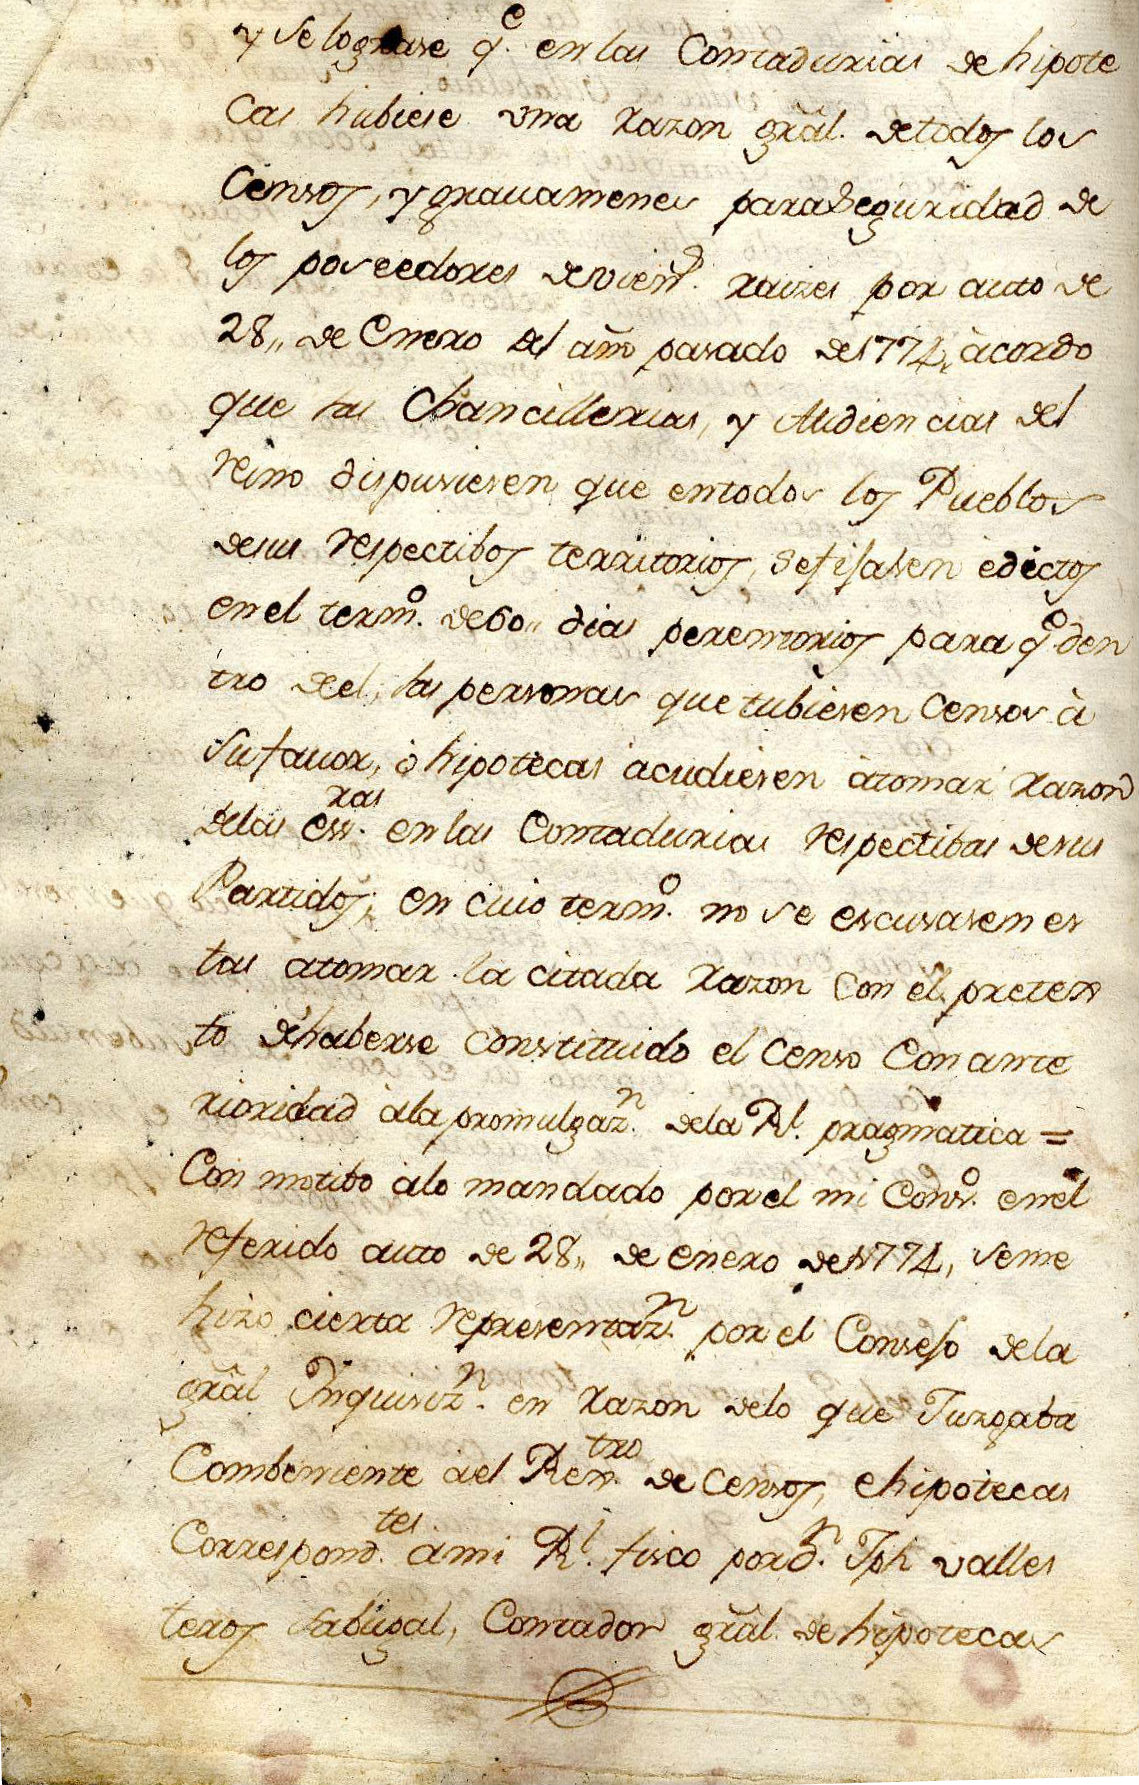 y se lograse q.e en las Contadurias de hipote
cas hubiese vna razon grãl. de todos los
Censos, y grauamenes para Seguridad de
los poseedores de vien.s raizes por auto de
28,, de Enero del año pasado de 1774, àcordo
que las Chancillerias, y Audiencias del
reino dispusiesen que en todos los Pueblos
de sus respectibos territorios, se fijasen edictos
en el term.o de 60,, dias perentorios para q.e den
tro de el, las personas que tubiesen Censos à
su fauor, ò hipotecas acudiesen àtomar razon
delas ess.ras en las Contadurias respectibas de sus
Partidos, en cuio term.o no se escusasen es
tas atomar la citada razon con el pretex
to de haberse constituido el Censo con ante
rioridad àla promulgaz.n dela R.l pragmatica =
Con motibo alo mandado por el mi Cons.o en el
referido auto de 28,, de enero de 1774, se me
hizo cierta representaz.n por el Consejo dela
grãl Ynquisiz.n en razon delo que Juzgaba
Combeniente àel Rex.tro de Censos, e hipotecas
Correspond.tes a mi R.l fisco por d.n Jph valles
teros sabugal, Contador grãl. de hipotecas